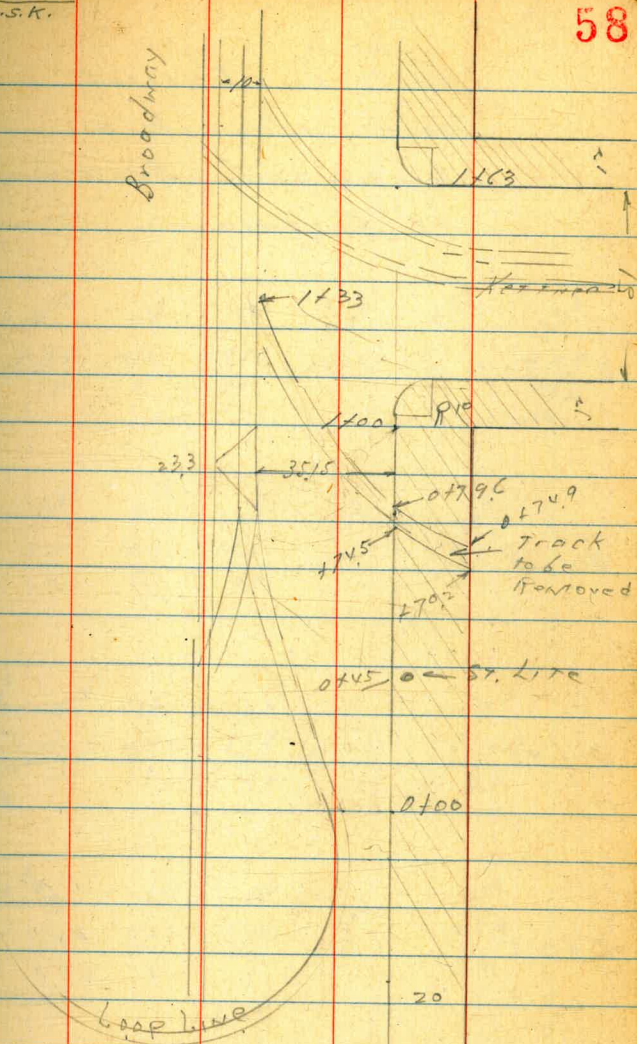 .S.K.
58
Broadway
10
1+63
1+33
R10
1+00
23.3
35.15
0+79.6
0+74.9
+74.5
Track
to be
Removed
+70.2
0+45
St. Lite
0+00
20
Loop Line